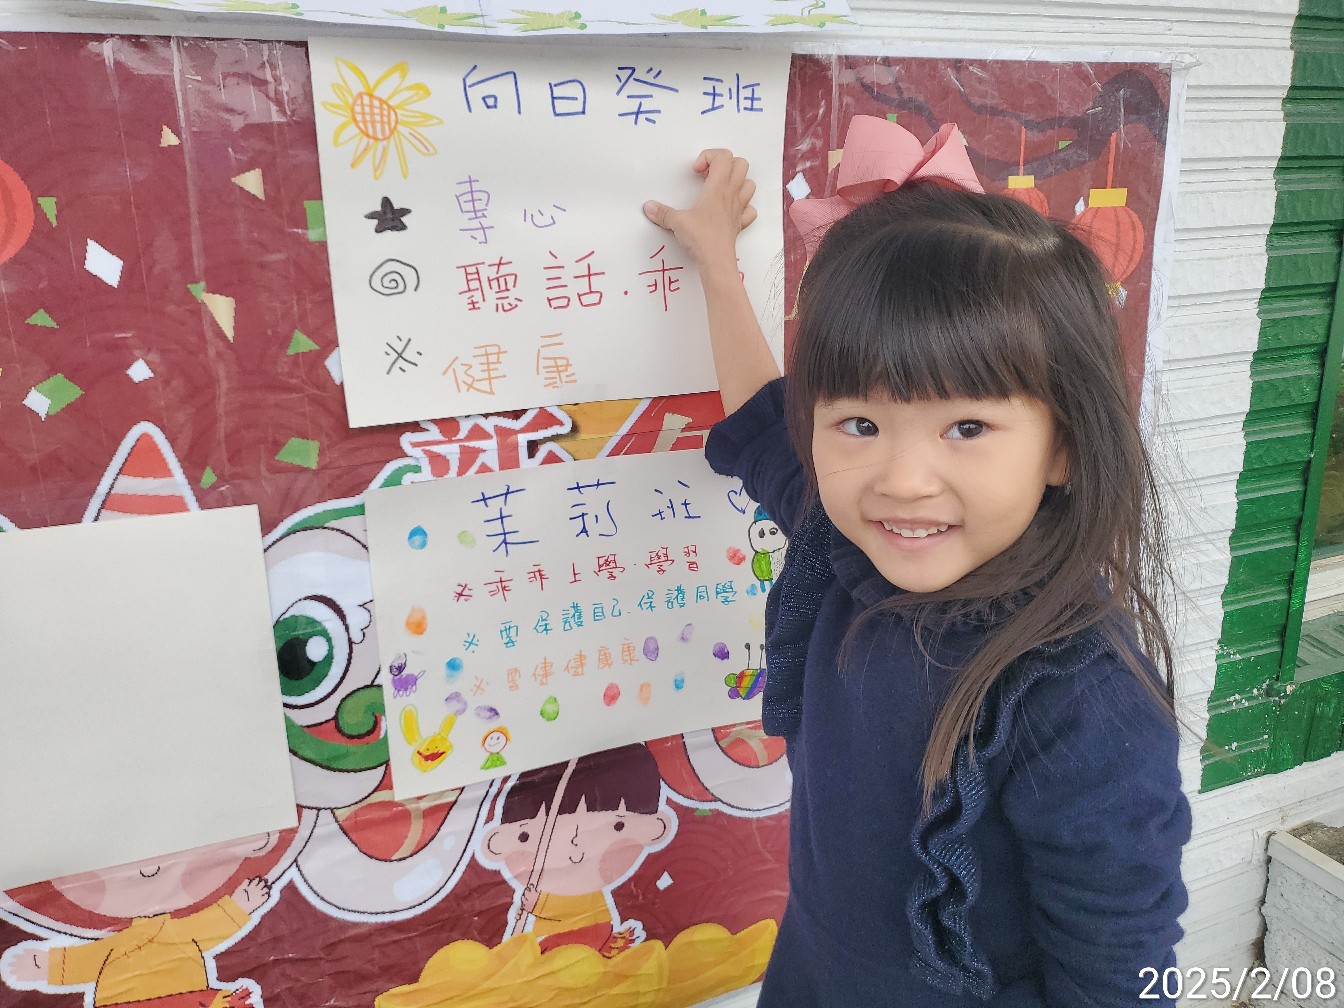 向日癸班
專心
聽話.乖
※ 健康
茉莉班♡
※乖乖上學.學習
※要保護自己.保護同學
※要健健康康
2025/2/08